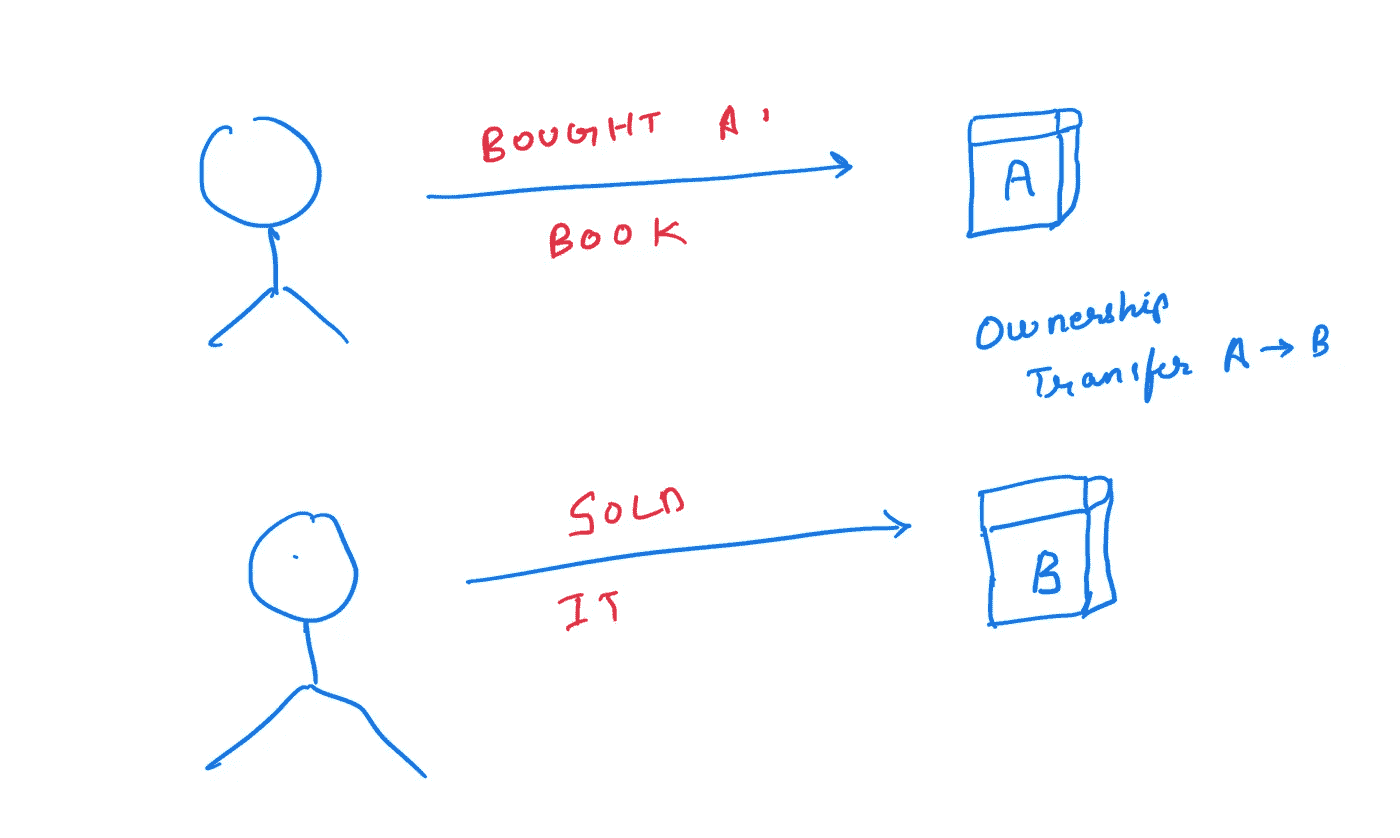 BOUGHT A
BOOK
A
Ownership
Transfer A → B
SOLD
IT
B